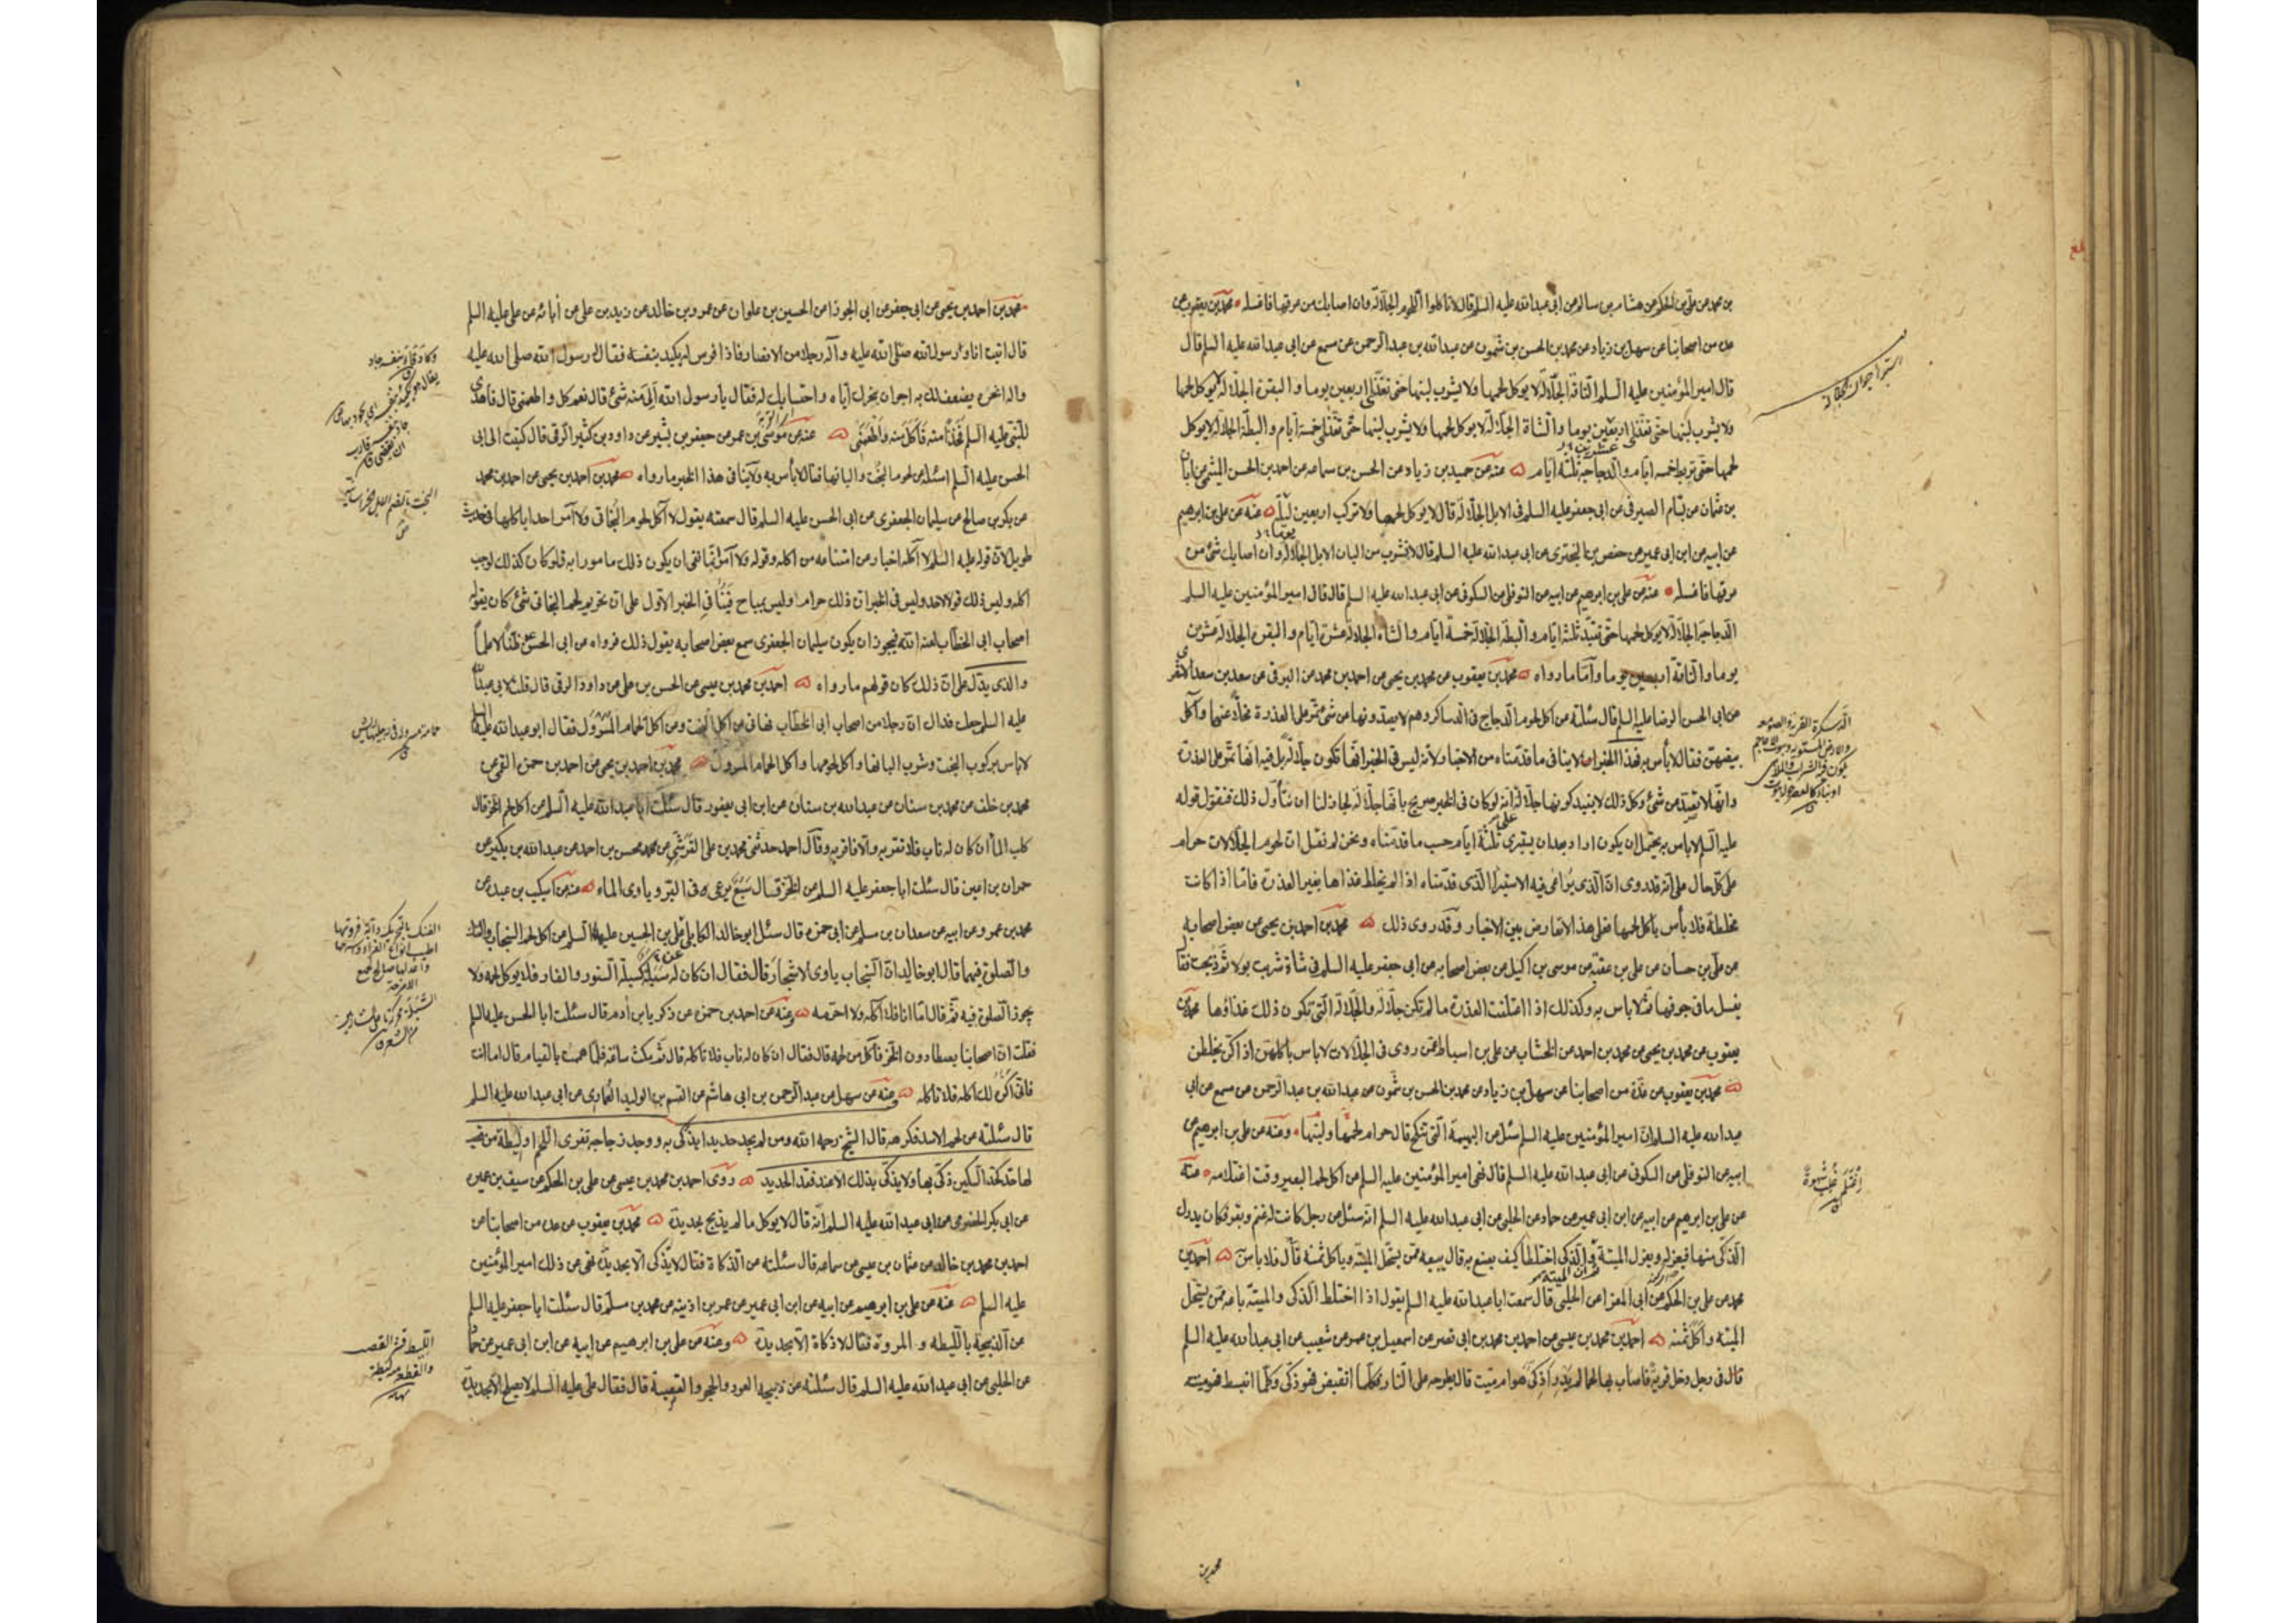 بن محمد عن علي بن الحكم عن هشام بن سالم عن ابى عبدالله عليه السلم قال لا تاكلوا اللحوم الجلالة وان اصابك من عرقها فاغسله محمد بن يعقوب عن
عدة من اصحابنا عن سهل بن زياد عن محمد بن الحسن بن شمون عن عبدالله بن عبدالرحمن عن مسمع عن ابى عبدالله عليه السلم قال
قال امير المؤمنين عليه السلم الناقة الجلالة لا يوكل لحمها ولا يشرب لبنها حتى تغتذى اربعين يوما والبقرة الجلالة لا يوكل لحمها
ولا يشرب لبنها حتى تغتذى اربعين يوما والشاة الجلالة لا يوكل لحمها ولا يشرب لبنها حتى تغتذى خمسة ايام والبطة الجلالة لا يوكل
لحمها حتى تربط خمسة ايام والدجاجة ثلثة ايام عنه عن حميد بن زياد عن الحسن بن سماعه عن احمد بن الحسن الميثمى عن ابان
بن عثمان عن بسام الصيرفى عن ابى جعفر عليه السلم فى الابل الجلالة قال لا يوكل لحمها ولا تركب اربعين عنه عن على بن ابرهيم
عن ابيه عن ابن ابى عمير عن حفص بن البخترى عن ابى عبدالله عليه السلم قال لا تشرب من البان الابل الجلالة وان اصابك شئ من
عرقها فاغسله عنه عن على بن ابرهيم عن ابيه عن النوفلى عن السكونى عن ابى عبدالله عليه السلم قال قال امير المؤمنين عليه السلم
الدجاجة الجلالة لا يوكل لحمها حتى تقيد ثلثة ايام والبطة الجلالة خمسة ايام والشاة الجلالة عشرة ايام والبقرة الجلالة عشرين
يوما والناقة اربعين يوما واما ما رواه محمد بن يعقوب عن محمد بن يحيى عن احمد بن محمد عن البرقى عن سعد بن سعد الاشعرى
عن ابى الحسن الرضا عليه السلم قال سئلته عن اكل لحوم الدجاج فى الدساكر وهم لا يصدونها عن شئ تمر على العذرة مخلا عنها واكل
بيضهن فقال لا بأس به فهذا الخبر لا ينافى ما قدمناه من الاخبار لانه ليس فى الخبر انها تكون جلالة بل فيه انها تمر على العذرة
وانها لا تصد من شئ وكل ذلك لا يفيد كونها جلالة انه لو كان فى الخبر صريح بانها جلالة لجاز لنا ان نتأول ذلك فنقول قوله
عليه السلم لا باس به يحتمل ان يكون اراد بعد ان يستبرى ثلثة ايام حسب ما قدمناه ونحن لم نقل ان لحوم الجلالات حرام
على كل حال على انه قد روى ان الذى يراعى فيه الاستبراء الذى قدمناه اذا لم يخلط غذاها بغير العذرة فاما اذا كانت
مخلطة فلا بأس باكل لحمها فعلى هذا لا تعارض بين الاخبار وقد روى ذلك محمد بن احمد بن يحيى عن بعض اصحابه
عن على بن حسان عن على بن عقبة عن موسى بن اكيل عن بعض اصحابه عن ابى جعفر عليه السلم فى شاة شربت بولا ثم ذبحت فقال
يغسل ما فى جوفها ثم لا باس به وكذلك اذا اعتلفت العذرة ما لم تكن جلالة والجلالة التى تكون ذلك غذاؤها محمد بن
يعقوب عن محمد بن يحيى عن محمد بن احمد عن الخشاب عن على بن اسباط عمن روى فى الجلالات لا باس باكلهن اذا كن يخلطن
محمد بن يعقوب عن عدة من اصحابنا عن سهل بن زياد عن محمد بن الحسن بن شمون عن عبدالله بن عبدالرحمن عن مسمع عن ابى
عبدالله عليه السلم ان امير المؤمنين عليه السلم سئل عن البهيمة التى تنكح قال حرام لحمها ولبنها وعنه عن على بن ابرهيم عن
ابيه عن النوفلى عن السكونى عن ابى عبدالله عليه السلم قال نهى امير المؤمنين عليه السلم عن اكل لحم البعير وقت اغتلامه عنه
عن على بن ابرهيم عن ابيه عن ابن ابى عمير عن حماد عن الحلبى عن ابى عبدالله عليه السلم انه سئل عن رجل كانت له غنم وبقر وكان يدرك
الذكى منها فيعزله ويعزل الميتة ثم ان الميتة والذكى اختلطا كيف يصنع به قال يبيعه ممن يستحل الميتة وياكل ثمنه فلا باس احمد بن
محمد عن على بن الحكم عن ابى المغرا عن الحلبى قال سمعت ابا عبدالله عليه السلم يقول اذا اختلط الذكى والميتة باعه ممن يستحل
الميته واكل ثمنه احمد بن محمد بن عيسى عن احمد بن محمد بن ابى نصر عن اسمعيل بن عمر عن شعيب عن ابى عبدالله عليه السلم
قال فى رجل دخل قرية فاصاب بها لحما لم يدر اذكى هو ام ميت قال يطرحه على النار فكلما انقبض فهو ذكى وكلما انبسط فهو ميته
استبراء حيوان جلاله
اغتلم غلب شهوة
محمد بن
محمد بن احمد بن يحيى عن ابى جعفر عن ابى الجوزا عن الحسين بن علوان عن عمرو بن خالد عن زيد بن على عن آبائه عن على عليه السلم
قال اتيت انا ورسول الله صلى الله عليه وآله رجلا من الانصار فاذا فرس له يكيد بنفسه فقال رسول الله صلى الله عليه
واله انحره يضعف لك به اجران بنحرك اياه واحتسابك له فقال يا رسول الله الى منه شئ قال نعم كل واطعمنى قال فأهدى
للنبى عليه السلم فخذا منه فاكل منه واطعمنى عنه عن موسى بن عمر عن جعفر بن بشير عن داود بن كثير الرقى قال كتبت الى ابى
الحسن عليه السلم اسئله عن لحوم البخت والبانها فقال لا بأس به ولا ينافى هذا الخبر ما رواه محمد بن احمد بن يحيى عن احمد بن محمد
عن بكر بن صالح عن سليمان الجعفرى عن ابى الحسن عليه السلم قال سمعته يقول لا آكل لحوم البخاتى ولا آمر احدا باكلها فى حديث
طويل لان قوله عليه السلم لا آكله اخبار من امتناعه من اكله وقوله ولا آمر انما نفى ان يكون ذلك مامورا به فلو كان كذلك لوجب
اكله وليس ذلك قولا لاحد وليس فى الخبر ان ذلك حرام وليس بمباح فى الخبر الاول على ان تحريم لحم البخاتى شئ كان يقوله
اصحاب ابى الخطاب لعنه الله فيجوز ان يكون سليمان الجعفرى سمع بعض اصحابه يقول ذلك فرواه عن ابى الحسن ظنا لا علما
والذى يدل على ان ذلك كان قولهم ما رواه احمد بن محمد بن عيسى عن الحسن بن على عن داود الرقى قال قلت لابى عبدالله
عليه السلم جعلت فداك ان رجلا من اصحاب ابى الخطاب نهانى عن اكل البخت وعن اكل الحمام المسرول فقال ابو عبدالله عليه السلم
لا باس بركوب البخت وشرب البانها واكل لحومها واكل الحمام المسرول محمد بن احمد بن يحيى عن احمد بن حمزة القمى عن
محمد بن خلف عن محمد بن سنان عن عبدالله بن سنان عن ابن ابى يعفور قال سئلت ابا عبدالله عليه السلم عن اكل لحم الخز قال
كلب الماء ان كان له ناب فلا تقربه والا فاقربه وقال احمد حدثنى محمد بن على القرشى عن محمد بن احمد عن عبدالله بن بكير عن
حمران بن اعين قال سئلت ابا جعفر عليه السلم عن الخز فقال سبع يرعى فى البر وياوى الماء
محمد بن عمرو عن ابيه عن سعدان بن مسلم عن ابى حمزه قال سئل ابو خالد الكابلى على بن الحسين عليهما السلم عن اكل لحم السنجاب
والصلوة فيهما قال ابو خالد ان السنجاب ياوى الاشجار قال فقال ان كان له سبلة كسبلة السنور والفار فلا يوكل لحمه ولا
يجوز الصلوة فيه ثم قال اما انا فلا آكله ولا احرمه وعنه عن احمد بن حمزه عن ذكريا بن آدم قال سئلت ابا الحسن عليه السلم
فقلت ان اصحابنا يصطادون الخز فآكل من لحمه قال فقال ان كان له ناب فلا تاكله قال ثم مكث ساعة فلما هممت بالقيام قال اما انت
فانى اكره لك اكله فلا تاكله وعنه عن سهل عن عبدالرحمن بن ابى هاشم عن القسم بن الوليد العمارى عن ابى عبدالله عليه السلم
قال سئلته عن لحم الاسد فكرهه قال الشيخ رحمه الله ومن لم يجد حديدا يذكى به ووجد زجاجة تفرى اللحم او ليطة من قصب
لها حد كحد السكين ذكى بها ولا يذكى بذلك الا عند فقد الحديد روى احمد بن محمد بن عيسى عن على بن الحكم عن سيف بن عميره
عن ابى بكر الحضرمى عن ابى عبدالله عليه السلم انه قال لا يوكل ما لم يذبح بحديدة محمد بن يعقوب عن عدة من اصحابنا عن
احمد بن محمد بن خالد عن عثمان بن عيسى عن سماعه قال سئلته عن الذكاة فقال لا يذكى الا بحديدة نهى عن ذلك امير المؤمنين
عليه السلم عنه عن على بن ابرهيم عن ابيه عن ابن ابى عمير عن عمر بن اذينه عن محمد بن مسلم قال سئلت ابا جعفر عليه السلم
عن الذبيحة بالليطه و المروة فقال لا ذكاة الا بحديدة وعنه عن على بن ابرهيم عن ابيه عن ابن ابى عمير عن حماد
عن الحلبى عن ابى عبدالله عليه السلم قال سئلته عن ذبيحة العود والحجر والقصبة قال فقال على عليه السلم لا يصلح الا بحديدة
البخت بالضم الابل الخراسانية
الليط قشر القصب
والقطعة ليطة